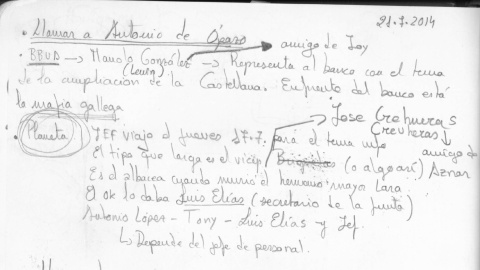 21.7.2014
• Llamar a Antonio de
• BBVA → Manolo González → Representa al banco con el tema
amigo de Joy
(Lewin)
de la ampliación de la Castellana. Enfrente del banco está
la mafia gallega
Jose Creheuras
(Creuheras)
amigo de Aznar
• Planeta JEF viajo el jueves 17.7. para el tema
El tipo que larga es el vicep. (o algo así)
Es el albacea cuando murió el hermano mayor Lara
El ok lo daba Luis Elías (secretario de la junta)
Antonio López - Tony - Luis Elías y Jef.
↳ Depende del jefe de personal.